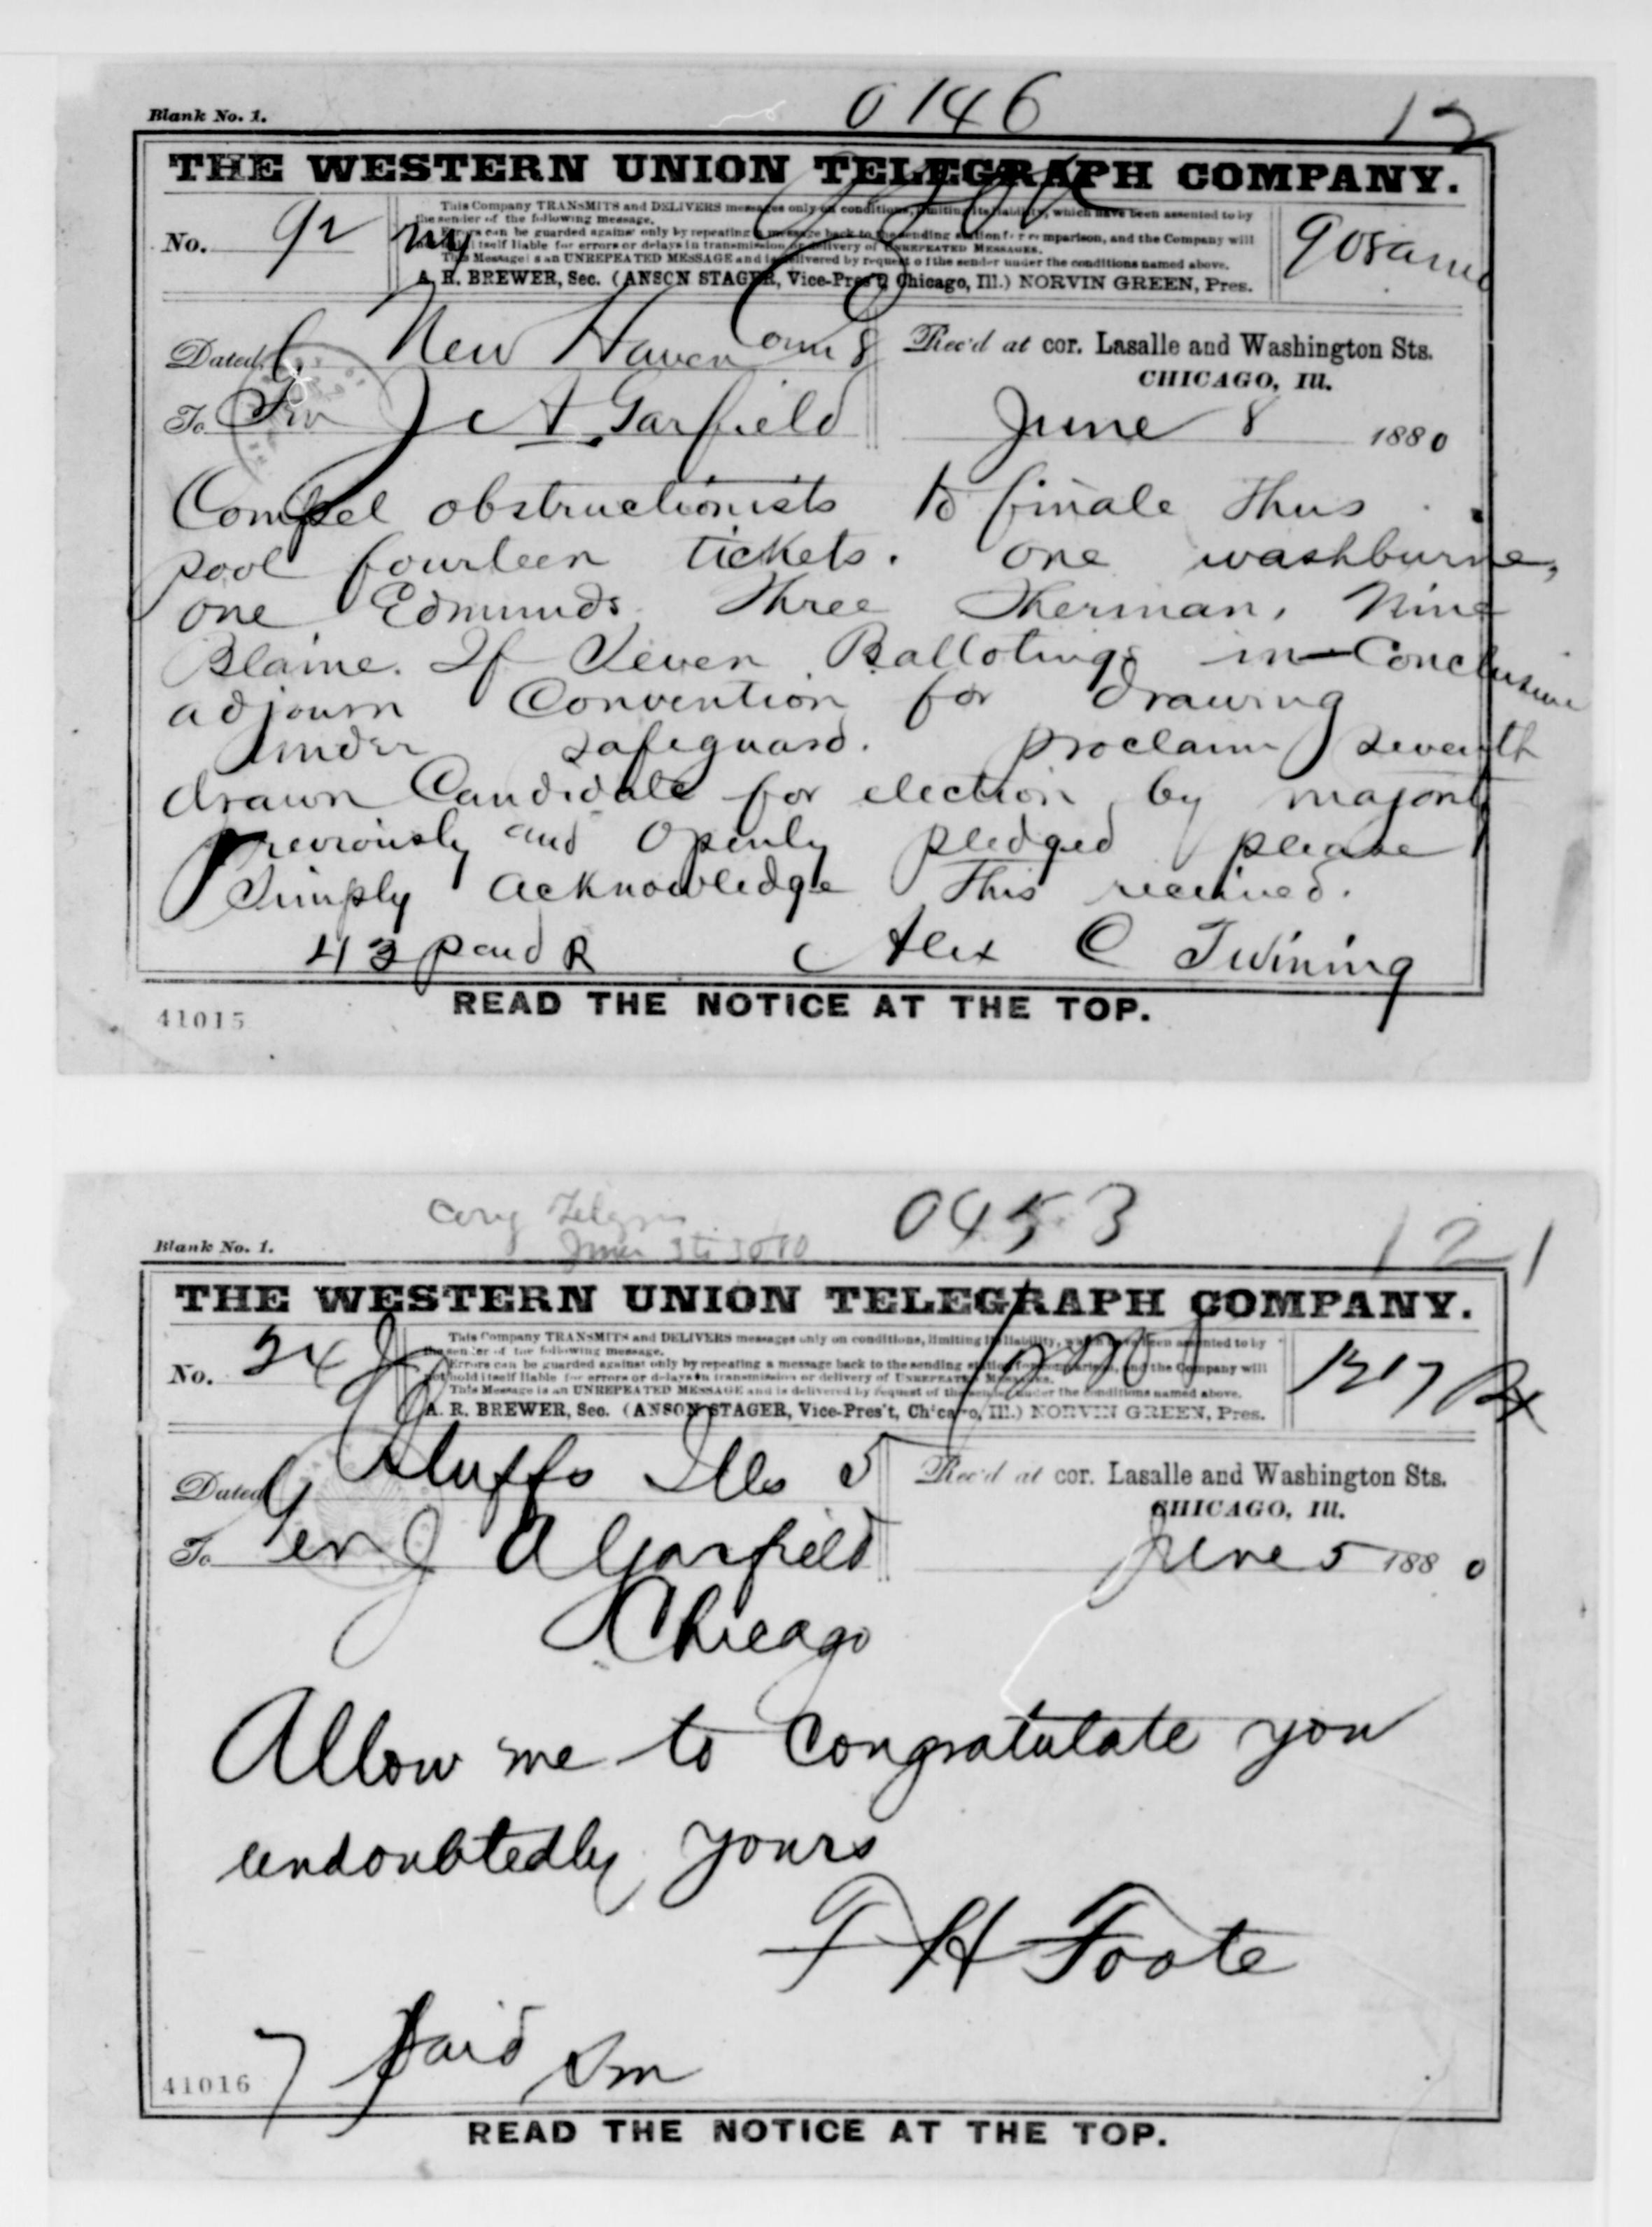 0146
12
Blank No. 1.
THE WESTERN UNION TELEGRAPH COMPANY.
No. 92
This Company TRANSMITS and DELIVERS messages only on conditions, limiting its liability, which have been assented to by
the sender of the following message.
Errors can be guarded against only by repeating a message back to the sending station for comparison, and the Company will
not hold itself liable for errors or delays in transmission or delivery of UNREPEATED MESSAGES.
This Message is an UNREPEATED MESSAGE and is delivered by request of the sender under the conditions named above.
A. R. BREWER, Sec. (ANSON STAGER, Vice-Pres't, Chicago, Ill.) NORVIN GREEN, Pres.
905am
Dated New Haven Conn 8
Rec'd at cor. Lasalle and Washington Sts.
CHICAGO, Ill.
To Gen J A Garfield
June 8 1880
Compel obstructionists to finale Thus
pool fourteen tickets. one washburne,
one Edmunds. Three Sherman, Nine
Blaine. If Seven Ballotings in-Conclusive
adjourn Convention for drawing
under safeguard. proclaim seventh
drawn Candidate for election by majority
previously and openly pledged please
Simply acknowledge This received.
43 paid R Alex C Twining
READ THE NOTICE AT THE TOP.
41015
0453
121
Blank No. 1.
THE WESTERN UNION TELEGRAPH COMPANY.
No. 24
This Company TRANSMITS and DELIVERS messages only on conditions, limiting its liability, which have been assented to by
the sender of the following message.
Errors can be guarded against only by repeating a message back to the sending station for comparison, and the Company will
not hold itself liable for errors or delays in transmission or delivery of UNREPEATED MESSAGES.
This Message is an UNREPEATED MESSAGE and is delivered by request of the sender under the conditions named above.
A. R. BREWER, Sec. (ANSON STAGER, Vice-Pres't, Chicago, Ill.) NORVIN GREEN, Pres.
1217
Dated Bluffs Ills 5
Rec'd at cor. Lasalle and Washington Sts.
CHICAGO, Ill.
To Gen J A Garfield
June 5 1880
Chicago
Allow me to Congratulate you
undoubtedly yours
F H Foote
7 paid Sm
41016
READ THE NOTICE AT THE TOP.